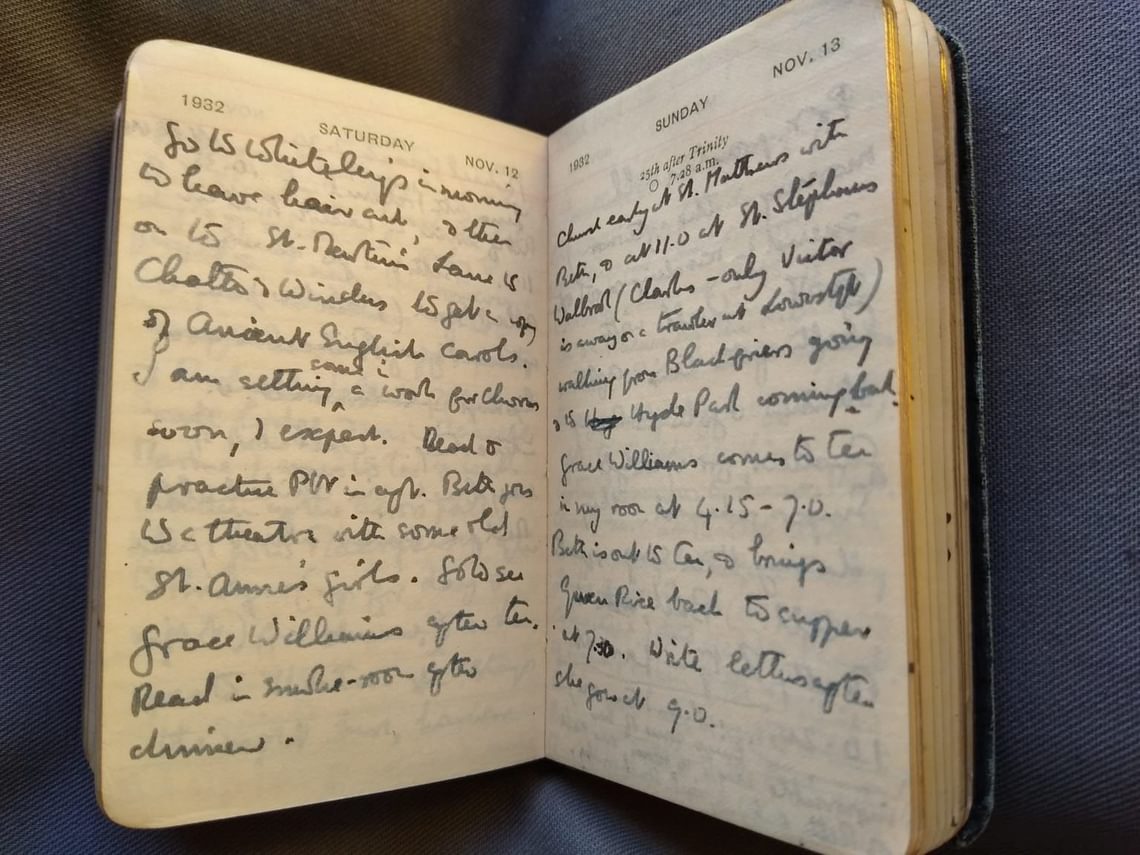 1932
SATURDAY
NOV. 12
Go to Whiteley's in morning
to have hair cut, & then
on to St. Martin's Lane to
Chatto & Windus to get a copy
of Ancient English Carols.
I am setting some in a work for Chorus
soon, I expect. Read &
practise PW in aft. Beth goes
to a theatre with some old
St. Anne's girls. Go to see
Grace Williams after tea.
Read in smoke-room after
dinner.
1932
SUNDAY
NOV. 13
25th after Trinity
7:28 a.m.
Church early at St. Matthews with
Beth, & at 11.0 at St. Stephens
Walbrook (Charles – only Victor
is away on a trawler at Lowestoft)
walking from Blackfriars going
& to Hyde Park coming back.
Grace Williams comes to tea
in my room at 4.15 – 7.0.
Beth is out to tea, & brings
Gwen Rice back to supper
at 7.30. Write letters after
she goes at 9.0.